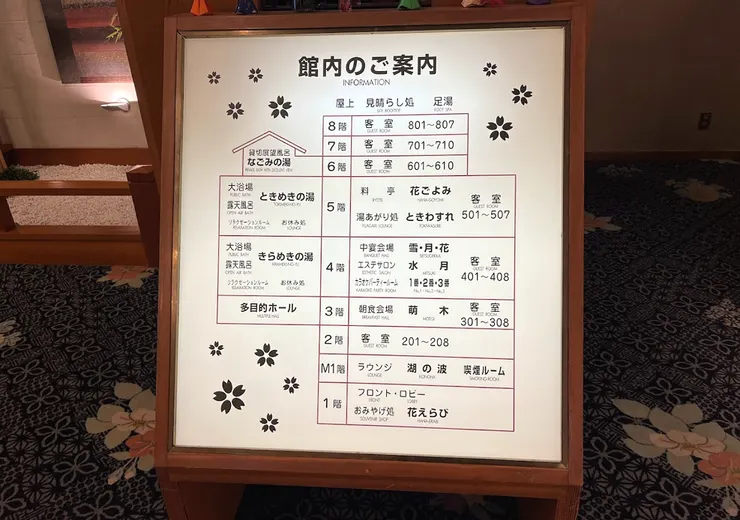 館内のご案内
INFORMATION
屋上 見晴らし処 足湯
8階 客室 801〜807
GUEST ROOM
7階 客室 701〜710
GUEST ROOM
貸切展望風呂
なごみの湯
6階 客室 601〜610
GUEST ROOM
大浴場 ときめきの湯
PUBLIC BATH
露天風呂
OPEN AIR BATH
リラクゼーションルーム お休み処
RELAXATION ROOM LOUNGE
5階
料亭 花ごよみ
湯あがり処 ときわすれ
客室
GUEST ROOM
501〜507
大浴場 きらめきの湯
PUBLIC BATH
露天風呂
OPEN AIR BATH
リラクゼーションルーム お休み処
RELAXATION ROOM LOUNGE
4階
中宴会場 雪・月・花
BANQUET HALL
エステサロン 水月
ESTHETIC SALON
カラオケパーティールーム 1番・2番・3番
KARAOKE PARTY ROOM
客室
GUEST ROOM
401〜408
多目的ホール
3階
朝食会場 萌木
BREAKFAST HALL MOEGI
客室
GUEST ROOM
301〜308
2階 客室 201〜208
GUEST ROOM
M1階 ラウンジ 湖の波 喫煙ルーム
LOUNGE SMOKING ROOM
1階
フロント・ロビー
FRONT LOBBY
おみやげ処 花えらび
SOUVENIR SHOP HANA-ERABI